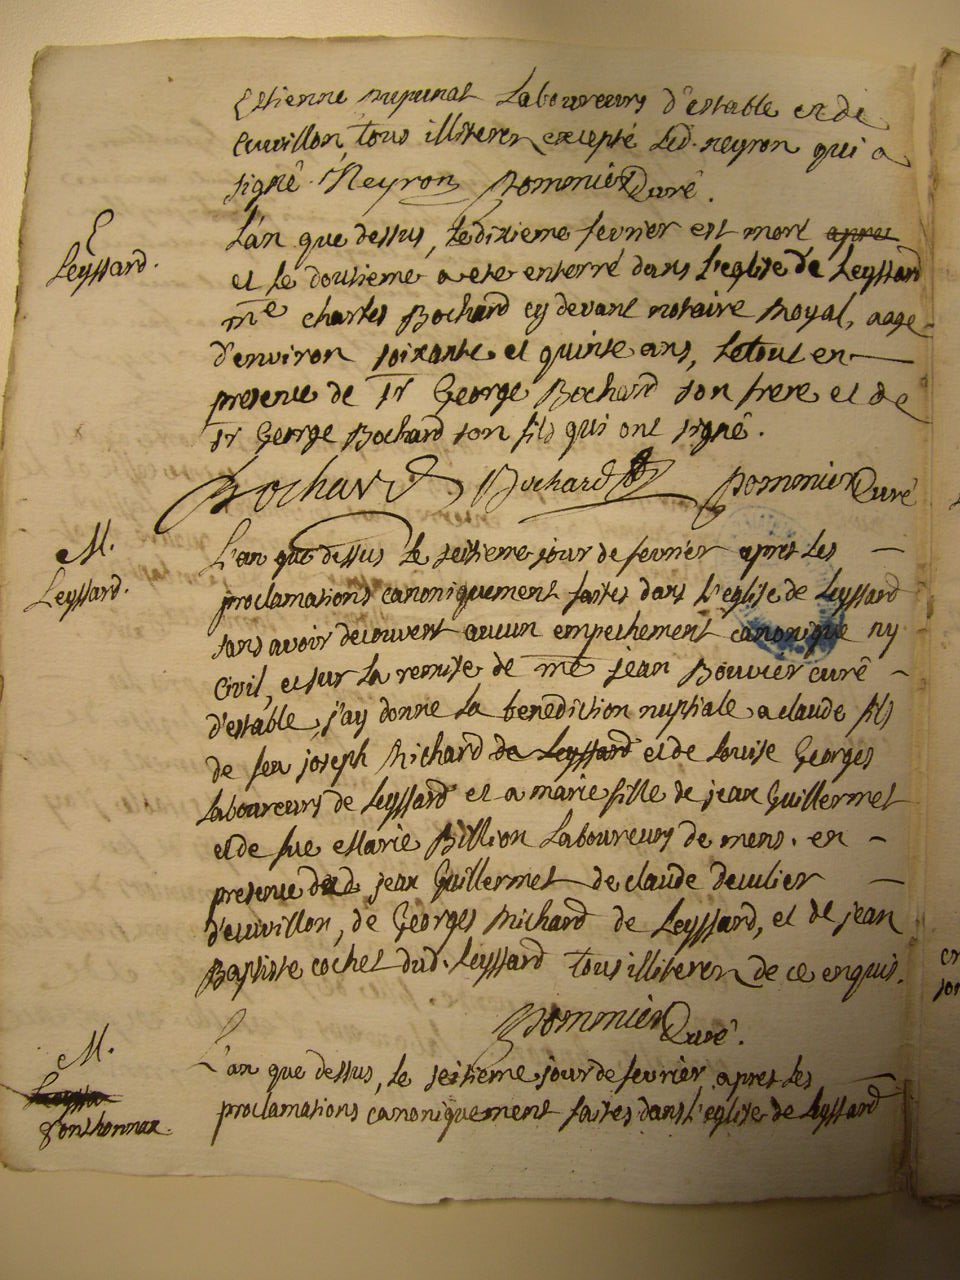 Estienne Laboureurs d'estable et de
Cuvillon, tous illiterer excepté Led. neyron qui a
signé. Neyron Pommier Curé.
E
Leyssard.
L'an que dessus, Ledixieme fevrier est mort apres
et le dousieme a ete enterré dans L'eglise de Leyssard
me charles Bochard cy devant notaire Royal, aage
d'environ soixante et quinse ans, Letout en
presence de Sr George Bochard son frere et de
Sr George Bochard son fils qui ont signé.
Bochard Bochard Pommier Curé
M.
Leyssard.
L'an que dessus Le seisieme jour de fevrier apres Les
proclamations canoniquement faites dans L'eglise de Leyssard
sans avoir decouvert aucun empechement canonique ny
Civil, et sur La remise de me jean Bouvier curé
d'estable, j'ay donne La benediction nuptiale a claude fils
de feu joseph Michard de Leyssard et de Louise Georges
Laboureurs de Leyssard et a marie fille de jean Guillermet
et de fue Marie Billion Laboureurs de mens. en
presence dud. jean Guillermet de claude
d'cuvillon, de Georges Michard de Leyssard, et de jean
Baptiste cochet dud. Leyssard tous illiterer de ce enquis.
Pommier Curé.
M.
Sonthonnax.
L'an que dessus, Le seisieme jour de fevrier apres Les
proclamations canoniquement faites dans L'eglise de Leyssard